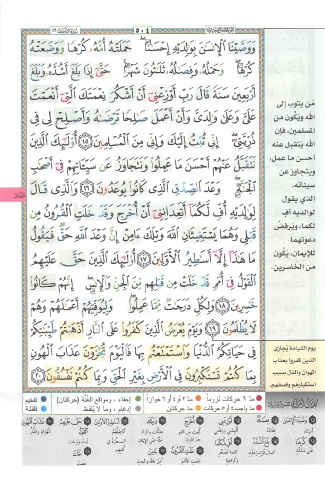 ٥٠٤
وَوَصَّيْنَا ٱلْإِنسَـٰنَ بِوَٰلِدَيْهِ إِحْسَـٰنًا ۖ حَمَلَتْهُ أُمُّهُۥ كُرْهًا وَوَضَعَتْهُ
كُرْهًا ۖ وَحَمْلُهُۥ وَفِصَـٰلُهُۥ ثَلَـٰثُونَ شَهْرًا ۚ حَتَّىٰٓ إِذَا بَلَغَ أَشُدَّهُۥ وَبَلَغَ
أَرْبَعِينَ سَنَةً قَالَ رَبِّ أَوْزِعْنِىٓ أَنْ أَشْكُرَ نِعْمَتَكَ ٱلَّتِىٓ أَنْعَمْتَ
عَلَىَّ وَعَلَىٰ وَٰلِدَىَّ وَأَنْ أَعْمَلَ صَـٰلِحًا تَرْضَىٰهُ وَأَصْلِحْ لِى فِى
ذُرِّيَّتِىٓ ۖ إِنِّى تُبْتُ إِلَيْكَ وَإِنِّى مِنَ ٱلْمُسْلِمِينَ ١٥ أُو۟لَـٰٓئِكَ ٱلَّذِينَ
نَتَقَبَّلُ عَنْهُمْ أَحْسَنَ مَا عَمِلُوا۟ وَنَتَجَاوَزُ عَن سَيِّـَٔاتِهِمْ فِىٓ أَصْحَـٰبِ
ٱلْجَنَّةِ ۖ وَعْدَ ٱلصِّدْقِ ٱلَّذِى كَانُوا۟ يُوعَدُونَ ١٦ وَٱلَّذِى قَالَ
لِوَٰلِدَيْهِ أُفٍّ لَّكُمَآ أَتَعِدَانِنِىٓ أَنْ أُخْرَجَ وَقَدْ خَلَتِ ٱلْقُرُونُ مِن
قَبْلِى وَهُمَا يَسْتَغِيثَانِ ٱللَّهَ وَيْلَكَ ءَامِنْ إِنَّ وَعْدَ ٱللَّهِ حَقٌّ فَيَقُولُ
مَا هَـٰذَآ إِلَّآ أَسَـٰطِيرُ ٱلْأَوَّلِينَ ١٧ أُو۟لَـٰٓئِكَ ٱلَّذِينَ حَقَّ عَلَيْهِمُ
ٱلْقَوْلُ فِىٓ أُمَمٍ قَدْ خَلَتْ مِن قَبْلِهِم مِّنَ ٱلْجِنِّ وَٱلْإِنسِ ۖ إِنَّهُمْ كَانُوا۟
خَـٰسِرِينَ ١٨ وَلِكُلٍّ دَرَجَـٰتٌ مِّمَّا عَمِلُوا۟ ۖ وَلِيُوَفِّيَهُمْ أَعْمَـٰلَهُمْ وَهُمْ
لَا يُظْلَمُونَ ١٩ وَيَوْمَ يُعْرَضُ ٱلَّذِينَ كَفَرُوا۟ عَلَى ٱلنَّارِ أَذْهَبْتُمْ طَيِّبَـٰتِكُمْ
فِى حَيَاتِكُمُ ٱلدُّنْيَا وَٱسْتَمْتَعْتُم بِهَا فَٱلْيَوْمَ تُجْزَوْنَ عَذَابَ ٱلْهُونِ
بِمَا كُنتُمْ تَسْتَكْبِرُونَ فِى ٱلْأَرْضِ بِغَيْرِ ٱلْحَقِّ وَبِمَا كُنتُمْ تَفْسُقُونَ ٢٠
مَن يتوب إلى
الله ويكون من
المسلمين، فإن
الله يتقبل عنه
أحسن ما عمل،
ويتجاوز عن
سيئاته.
الذي يقول
لوالديه أف
لكما، ويرفض
دعوتهما
للإيمان، يكون
من الخاسرين.
يوم القيامة يُجازى
الذين كفروا بعذاب
الهوان والذل بسبب
استكبارهم وفسقهم.